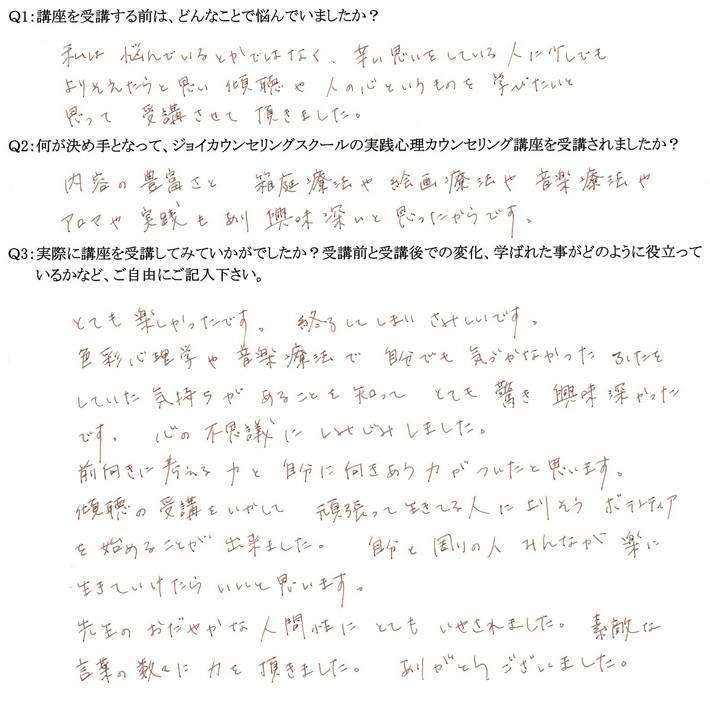 Q1:講座を受講する前は、どんなことで悩んでいましたか？
私は 悩んでいるとかではなく、辛い思いをしている人に少しでも
よりそえたらと思い 傾聴や 人の心というものを 学びたいと
思って 受講させて 頂きました。
Q2:何が決め手となって、ジョイカウンセリングスクールの実践心理カウンセリング講座を受講されましたか？
内容の豊富さと 箱庭療法や 絵画療法や 音楽療法や
アロマや 実践もあり 興味深いと思ったからです。
Q3:実際に講座を受講してみていかがでしたか？受講前と受講後での変化、学ばれた事がどのように役立って
いるかなど、ご自由にご記入下さい。
とても 楽しかったです。 終了してしまい さみしいです。
色彩心理学や 音楽療法で 自分でも 気づかなかった ふたを
していた 気持ちが あることを 知って とても 驚き 興味深かった
です。 心の不思議に しみじみしました。
前向きに 考える力と 自分に 向きあう力が ついたと思います。
傾聴の 受講をいかして 頑張って生きてる人に よりそう ボランティア
を 始めることが 出来ました。 自分と 周りの人 みんなが 楽に
生きていけたら いいなと思います。
先生の おだやかな 人間性に とても いやされました。 素敵な
言葉の数々に 力を 頂きました。 ありがとう ございました。